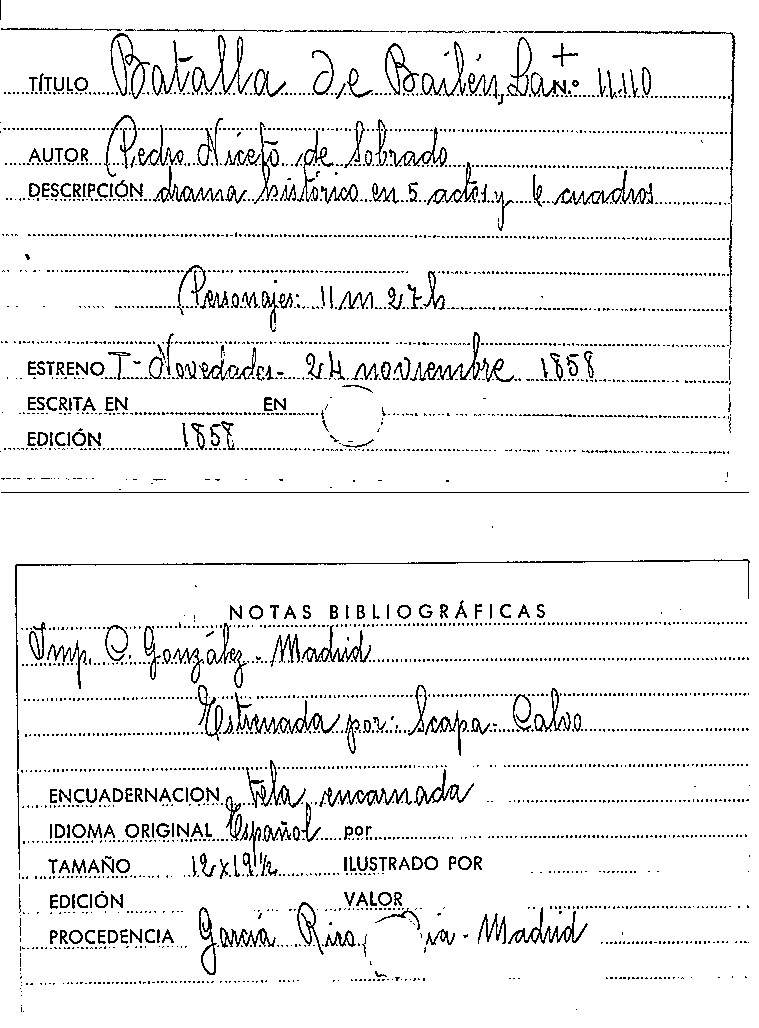 TÍTULO Batalla de Bailén, La + N.º 11.110
AUTOR Pedro Niceto de Sobrado
DESCRIPCIÓN drama histórico en 5 actos y 6 cuadros
Personajes: 11 m 27 h
ESTRENO T- Novedades- 24 noviembre 1858
ESCRITA EN EN
EDICIÓN 1858
NOTAS BIBLIOGRÁFICAS
Imp. C. González - Madrid
Estrenada por: Scapa- Calvo
ENCUADERNACION tela encarnada
IDIOMA ORIGINAL Español por
TAMAÑO 12 x 19 ½ ILUSTRADO POR
EDICIÓN VALOR
PROCEDENCIA García Rico - Madrid